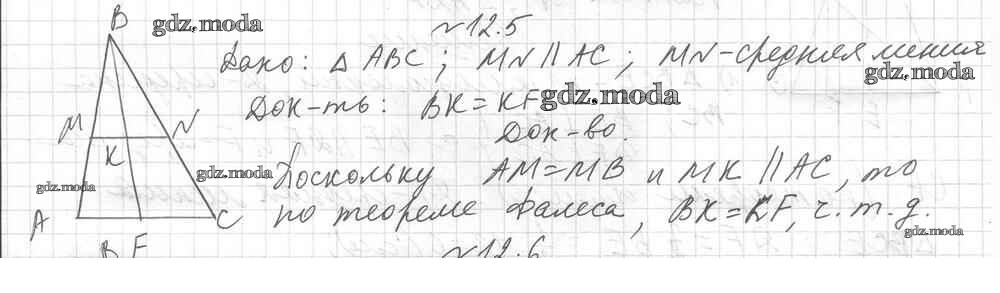 B gdz.moda №12.5
Дано: △ ABC; MN || AC; MN - средняя линия
gdz.moda
Док-ть: BK = KF gdz.moda
Док-во.
M N
K
gdz.moda Поскольку AM = MB и MK || AC, то
gdz.moda
A C по теореме Фалеса, BK = KF, ч.т.д.
gdz.moda
F №12.6